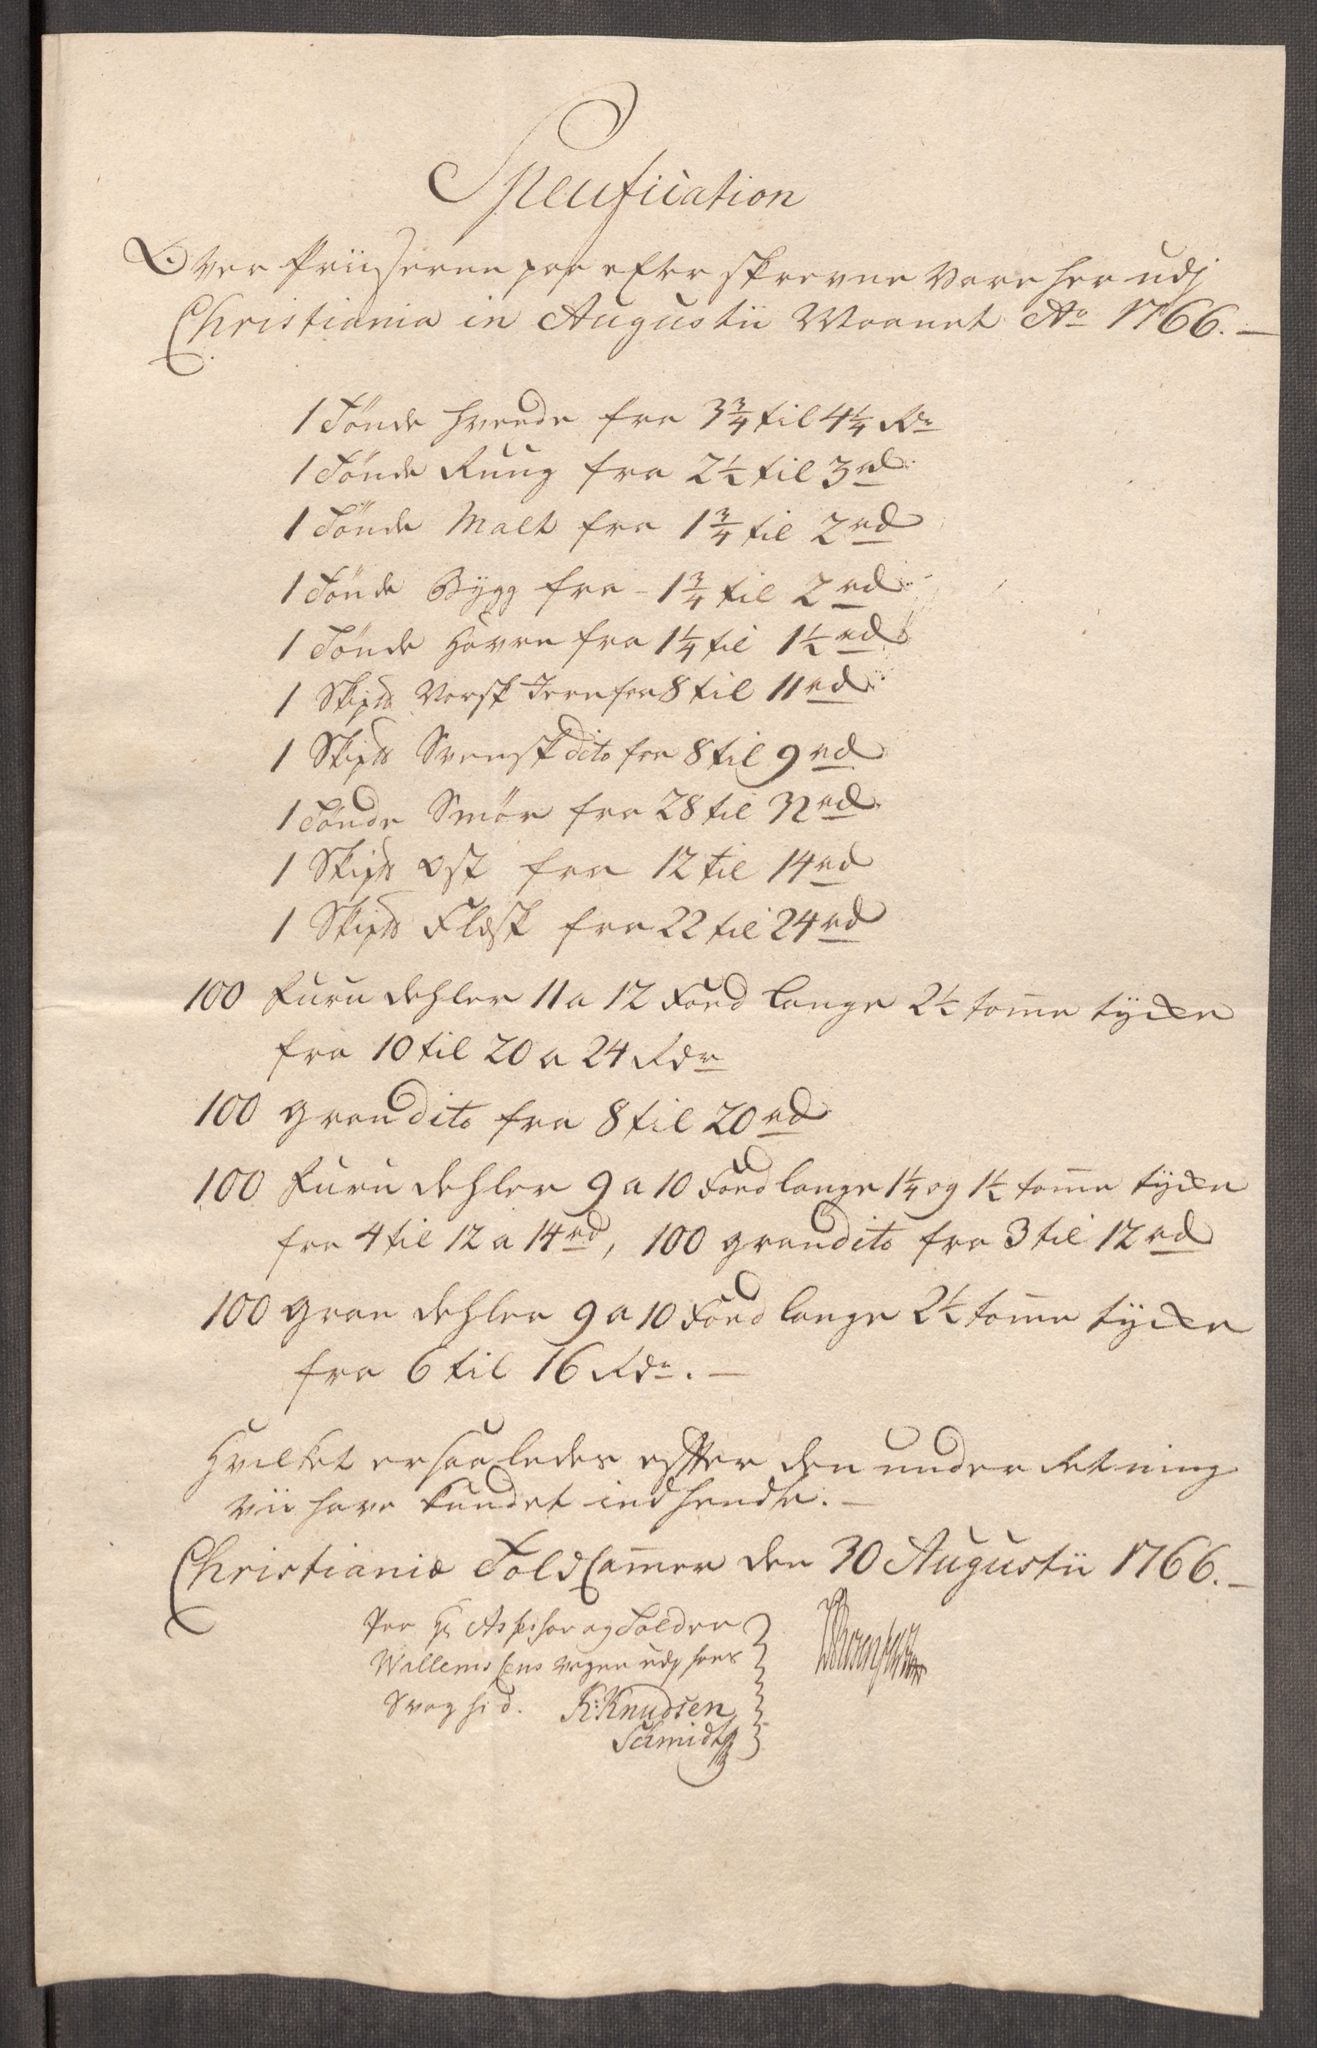 Specification
Over Priiserne paa efter skrevne Vare her udj
Christiania in Augustii Maanet Ao 1766.
1 Tönde Hvede fra 3 3/4 til 4 1/4 Rdr
1 Tönde Ruug fra 2 1/2 til 3 rd
1 Tönde Malt fra 1 3/4 til 2 rd
1 Tönde Bÿgg fra 1 3/4 til 2 rd
1 Tönde Havre fra 1 1/4 til 1 1/2 rd
1 Skipd Norsk Jern fra 8 til 11 rd
1 Skipd Svensk dito fra 8 til 9 rd
1 Tönde Smör fra 28 til 32 rd
1 Skipd Ost fra 12 til 14 rd
1 Skipd Flesk fra 22 til 24 rd
100 Furu dehler 11 a 12 Foed lange 2 1/2 tome tÿcke
fra 10 til 20 a 24 Rdr
100 gran dito fra 8 til 20 rd
100 Furu dehler 9 a 10 Foed lange 1 1/4 og 1 1/2 tome tÿcke
fra 4 til 12 a 14 rd, 100 gran dito fra 3 til 12 rd
100 Gran dehler 9 a 10 Foed lange 2 1/2 tome tÿcke
fra 6 til 16 Rdr.
Hvilket er saaledes efter den underretning
vii have kundet indhendte.
Christiania Told Camer den 30 Augustii 1766.
Paa Hr Assessor og Tolder
Wallemsens vegne udj hans
Svaghed. K: Knudsen
Schmidt